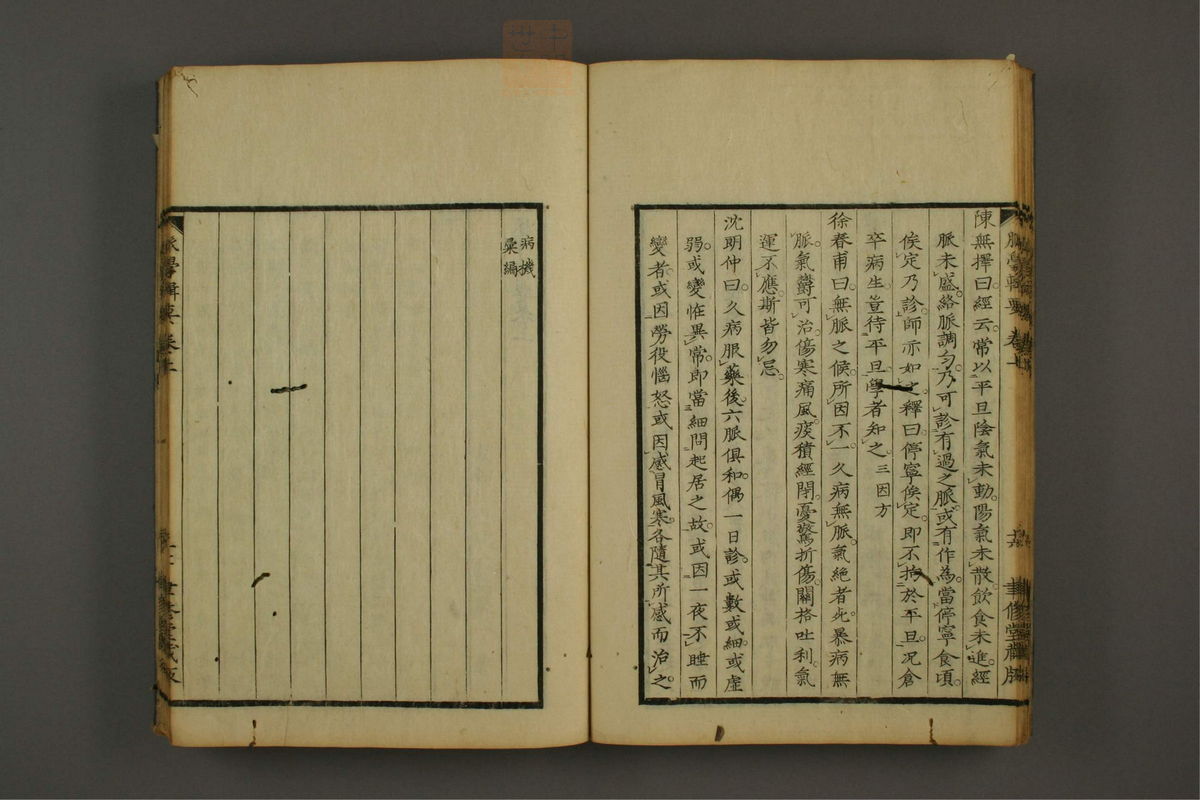 陳無擇曰經云常以平旦陰氣未動陽氣未散飲食未進經
脈未盛絡脈調勻乃可診有過之脈或有作為當停寧食頃
俟定乃診師亦如之釋曰停寧俟定即不拘於平旦況倉
卒病生豈待平旦學者知之 三因方
徐春甫曰無脈之候所因不一久病無脈氣絕者死暴病無
脈氣鬱可治傷寒痛風痰積經閉憂驚折傷關格吐利氣
運不應斯皆勿忌
沈明仲曰久病服藥後六脈俱和偶一日診或數或細或虛
弱或變怪異常即當細問起居之故或因一夜不睡而
變者或因勞役惱怒或因感冒風寒各隨其所感而治之
病機
彙編
脈學輯要 卷上